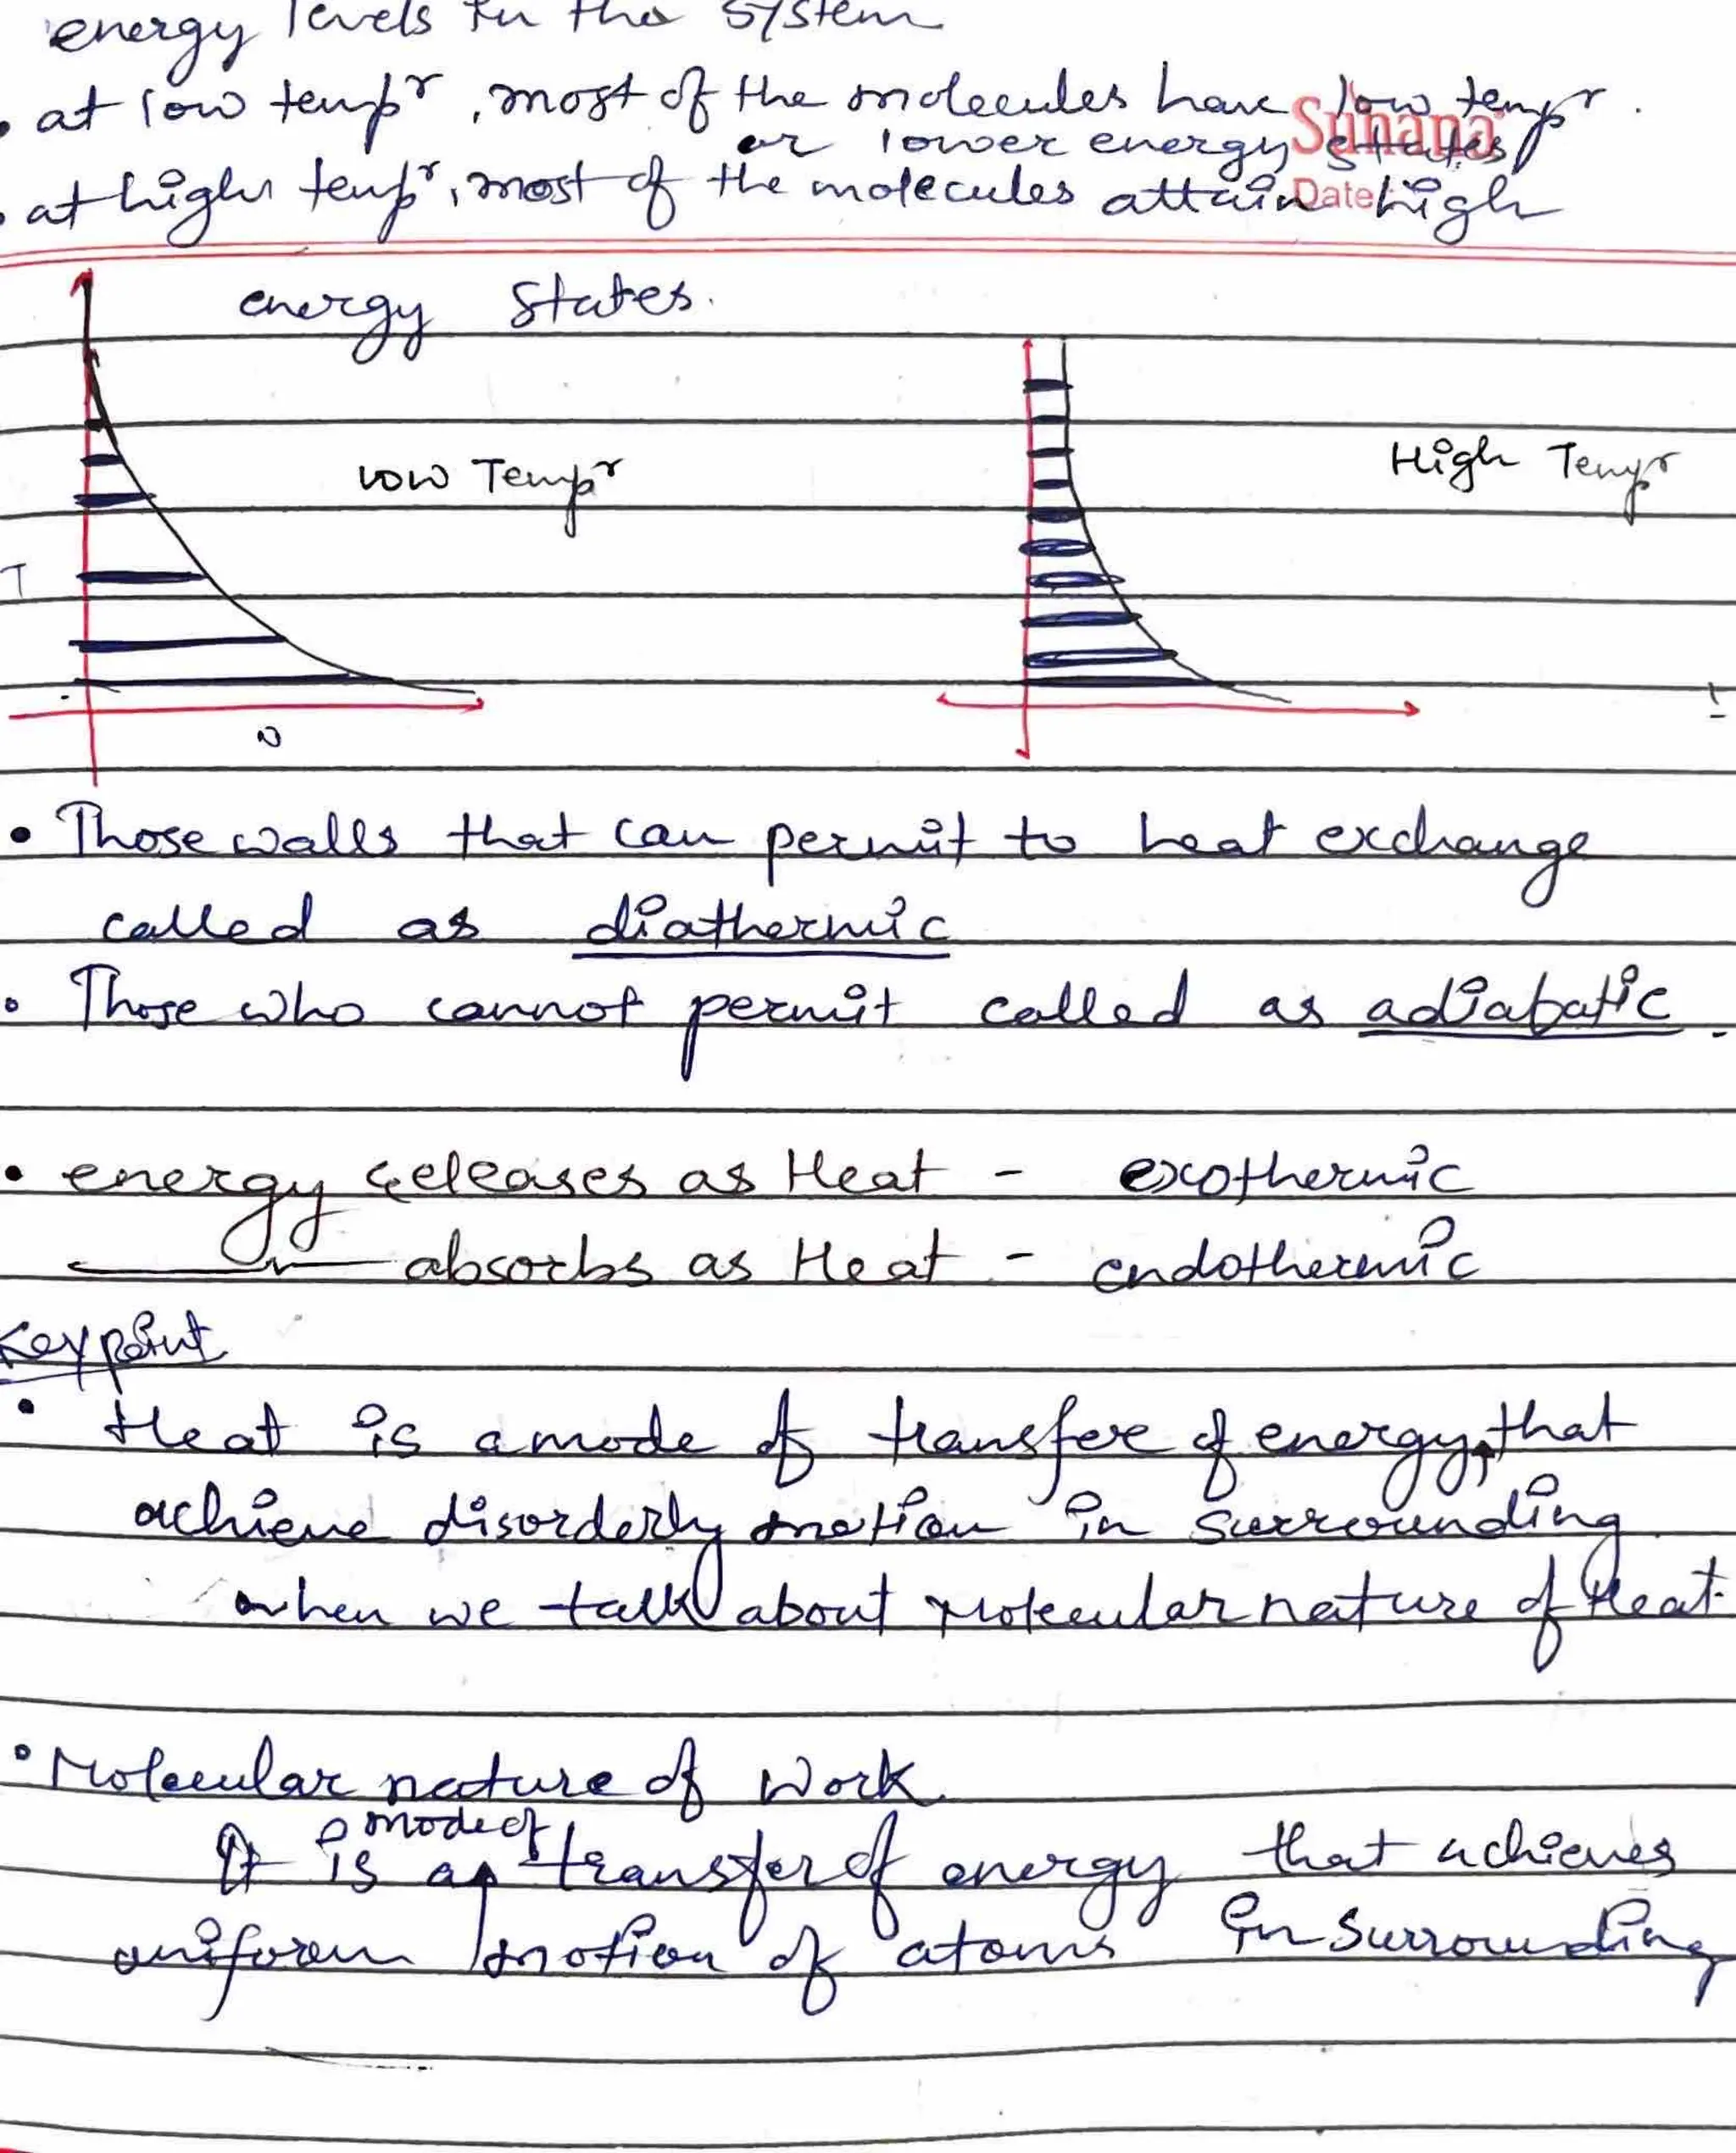 energy levels in the system
• at low tempr, most of the molecules have low tempr.
or lower energy states
• at high tempr, most of the molecules attain high
Suhana
Date
energy states.
Low Tempr
High Tempr
T
N
• Those walls that can permit to heat exchange
called as diathermic
• Those who cannot permit called as adiabatic.
• energy releases as Heat - exothermic
absorbs as Heat - endothermic
Keypoint
• Heat is a mode of transfer of energy, that
achieve disorderly motion in surrounding
when we talk about Molecular nature of Heat.
• Molecular nature of Work
mode of
It is a transfer of energy that achieves
uniform motion of atoms in surrounding